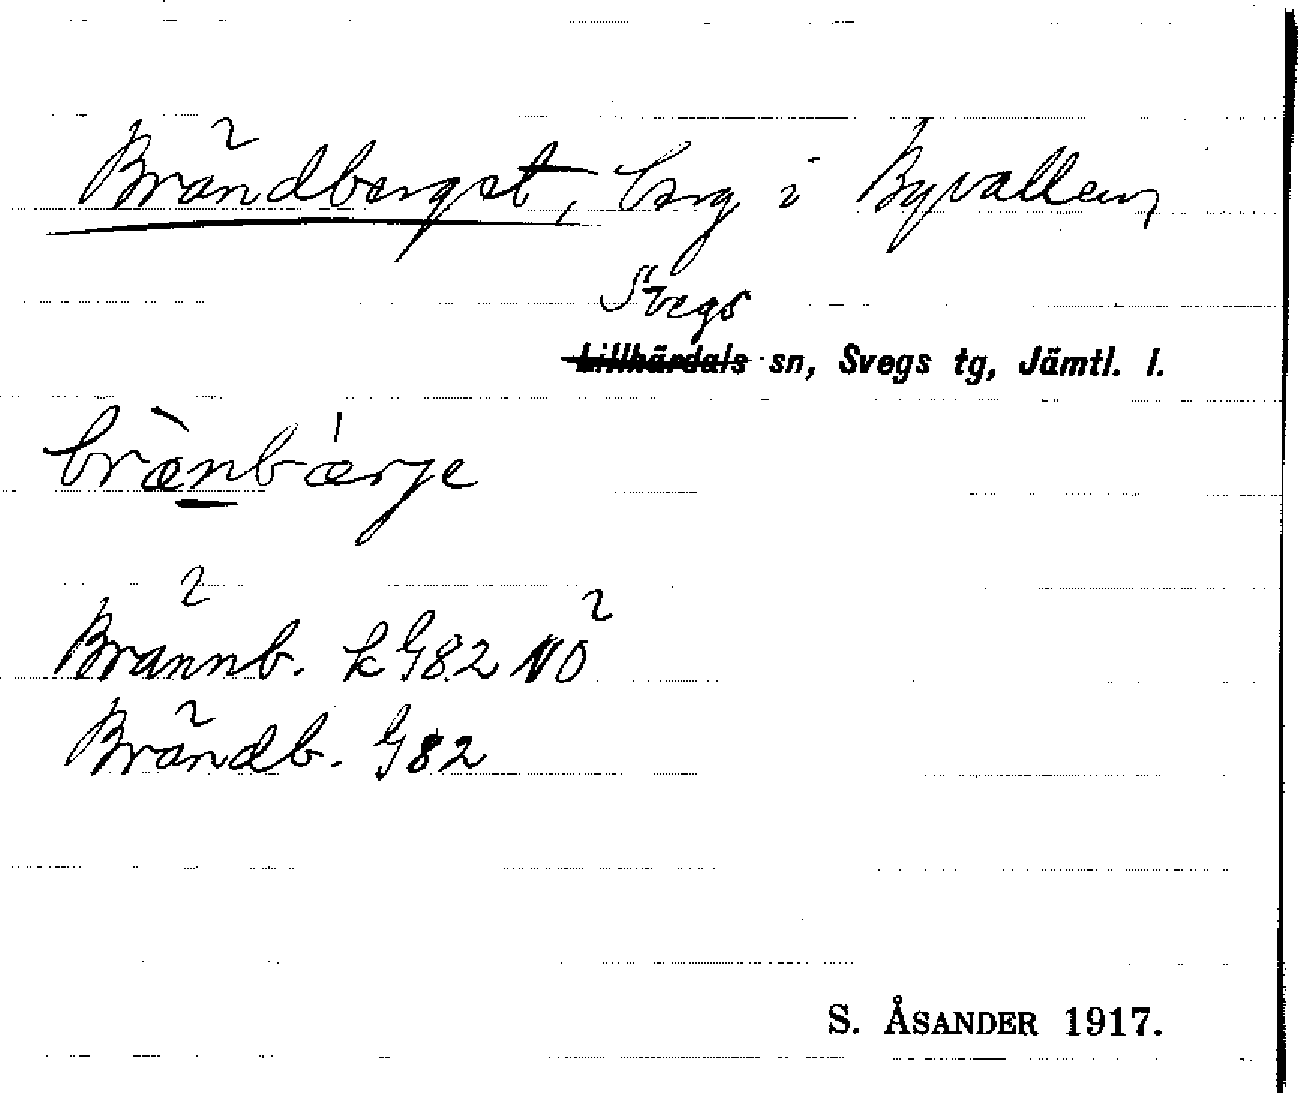 Brändberget, berg i Byvallen
Svegs
Lillhärdals sn, Svegs tg, Jämtl. l.
brænbærje
Brännb. k G82 NO
Brändb. G82
S. ÅSANDER 1917.